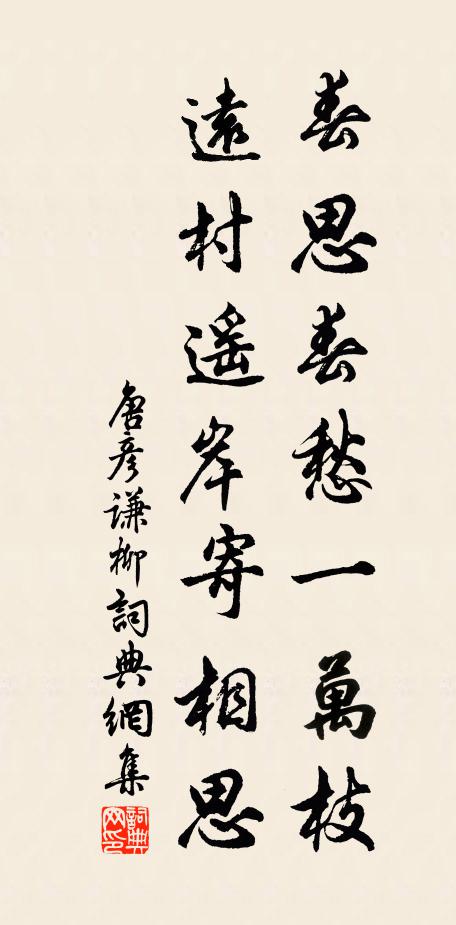 春思春愁一萬枝
遠村遥岸寄相思
唐彦謙柳詞典網集
詞典网印